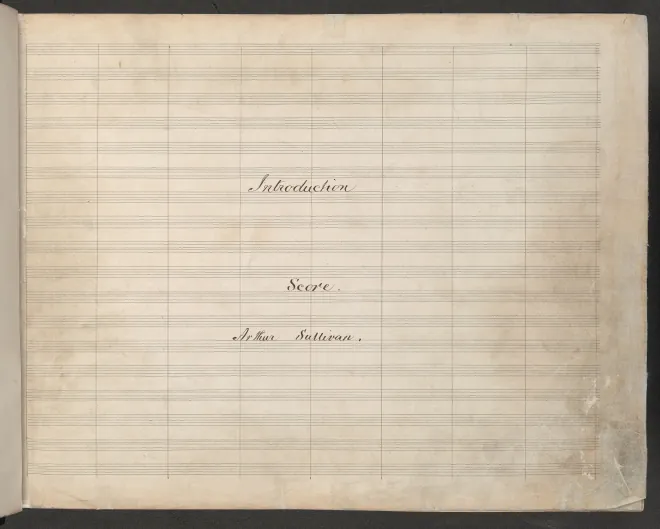 Introduction
Score.
Arthur Sullivan.